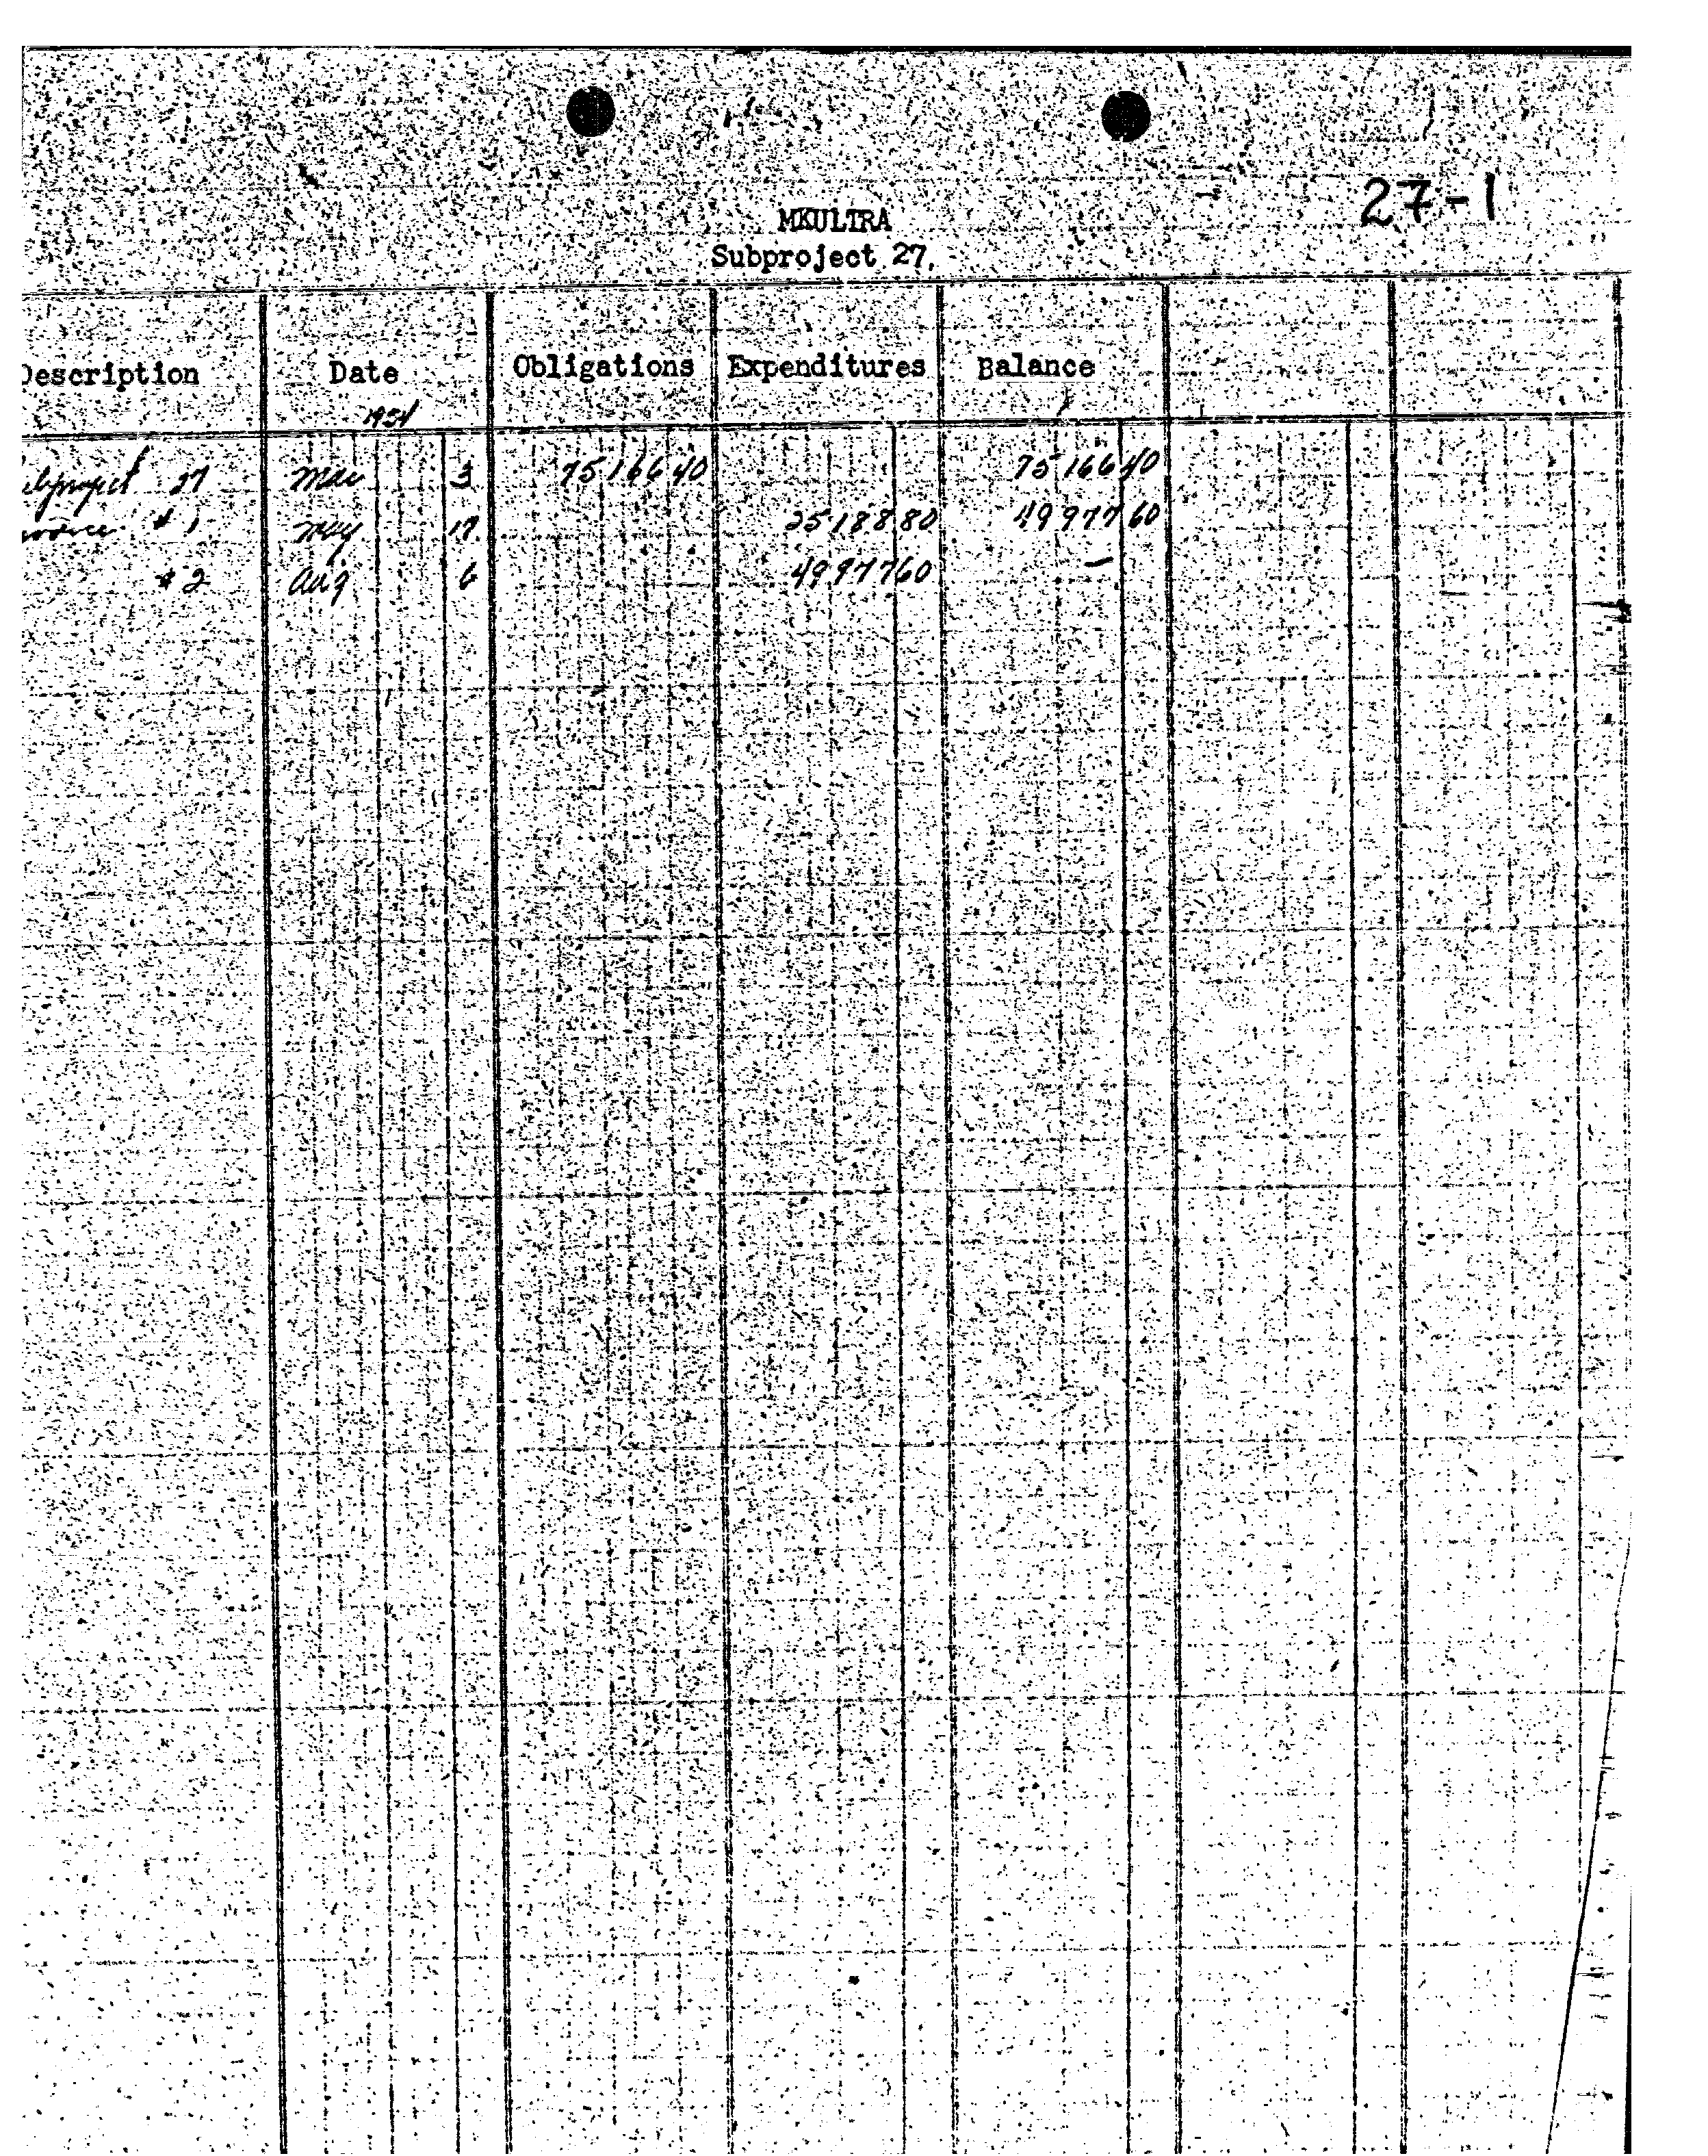 27-1
MKULTRA
Subproject 27.
Description Date Obligations Expenditures Balance
1954
ubproject 27 Mar 3 75 166 40 75 166 40
nvoice # 1 May 17 25 188 80 49 977 60
# 2 Aug 6 49 977 60 —